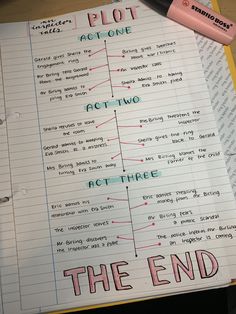 An
inspector
calls
PLOT
STABILO BOSS
ACT ONE
Gerald gives Sheila the
engagement ring
Birling gives speeches
about war / titanic
Mr Birling tells Gerald
about the knighthood
An inspector calls
Mr Birling admits to
firing Eva Smith
Sheila admits to having
Eva Smith fired
ACT TWO
Sheila refuses to leave
the room
Mr Birling threatens the
inspector
Gerald admits to keeping
Eva Smith as a mistress
Sheila gives the ring
back to Gerald
Mrs Birling admits to
turning Eva Smith away
Mrs Birling blames the
father of the child
ACT THREE
Eric admits his
relationship with Eva Smith
Eric admits stealing
money from Mr Birling
The inspector leaves
Mr Birling fears
a public scandal
Mr Birling discovers
the inspector was a fake
The police inform Mr Birling
an inspector is coming
THE END